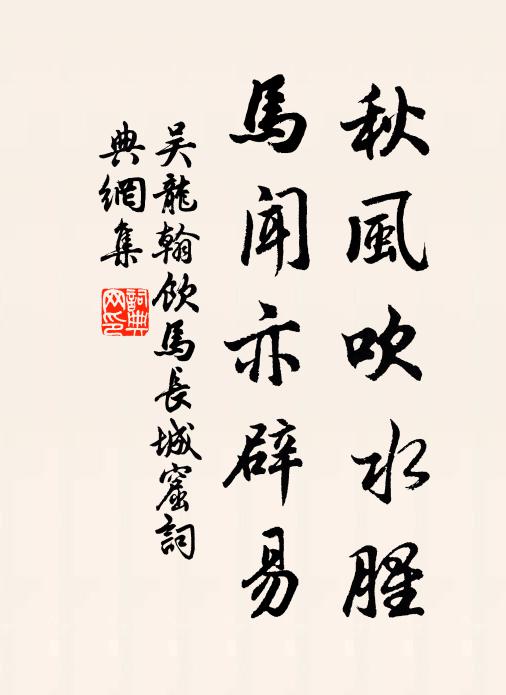 秋風吹水腥
馬聞亦辟易
吴龍翰飲馬長城窟詞
典網集
詞典網印